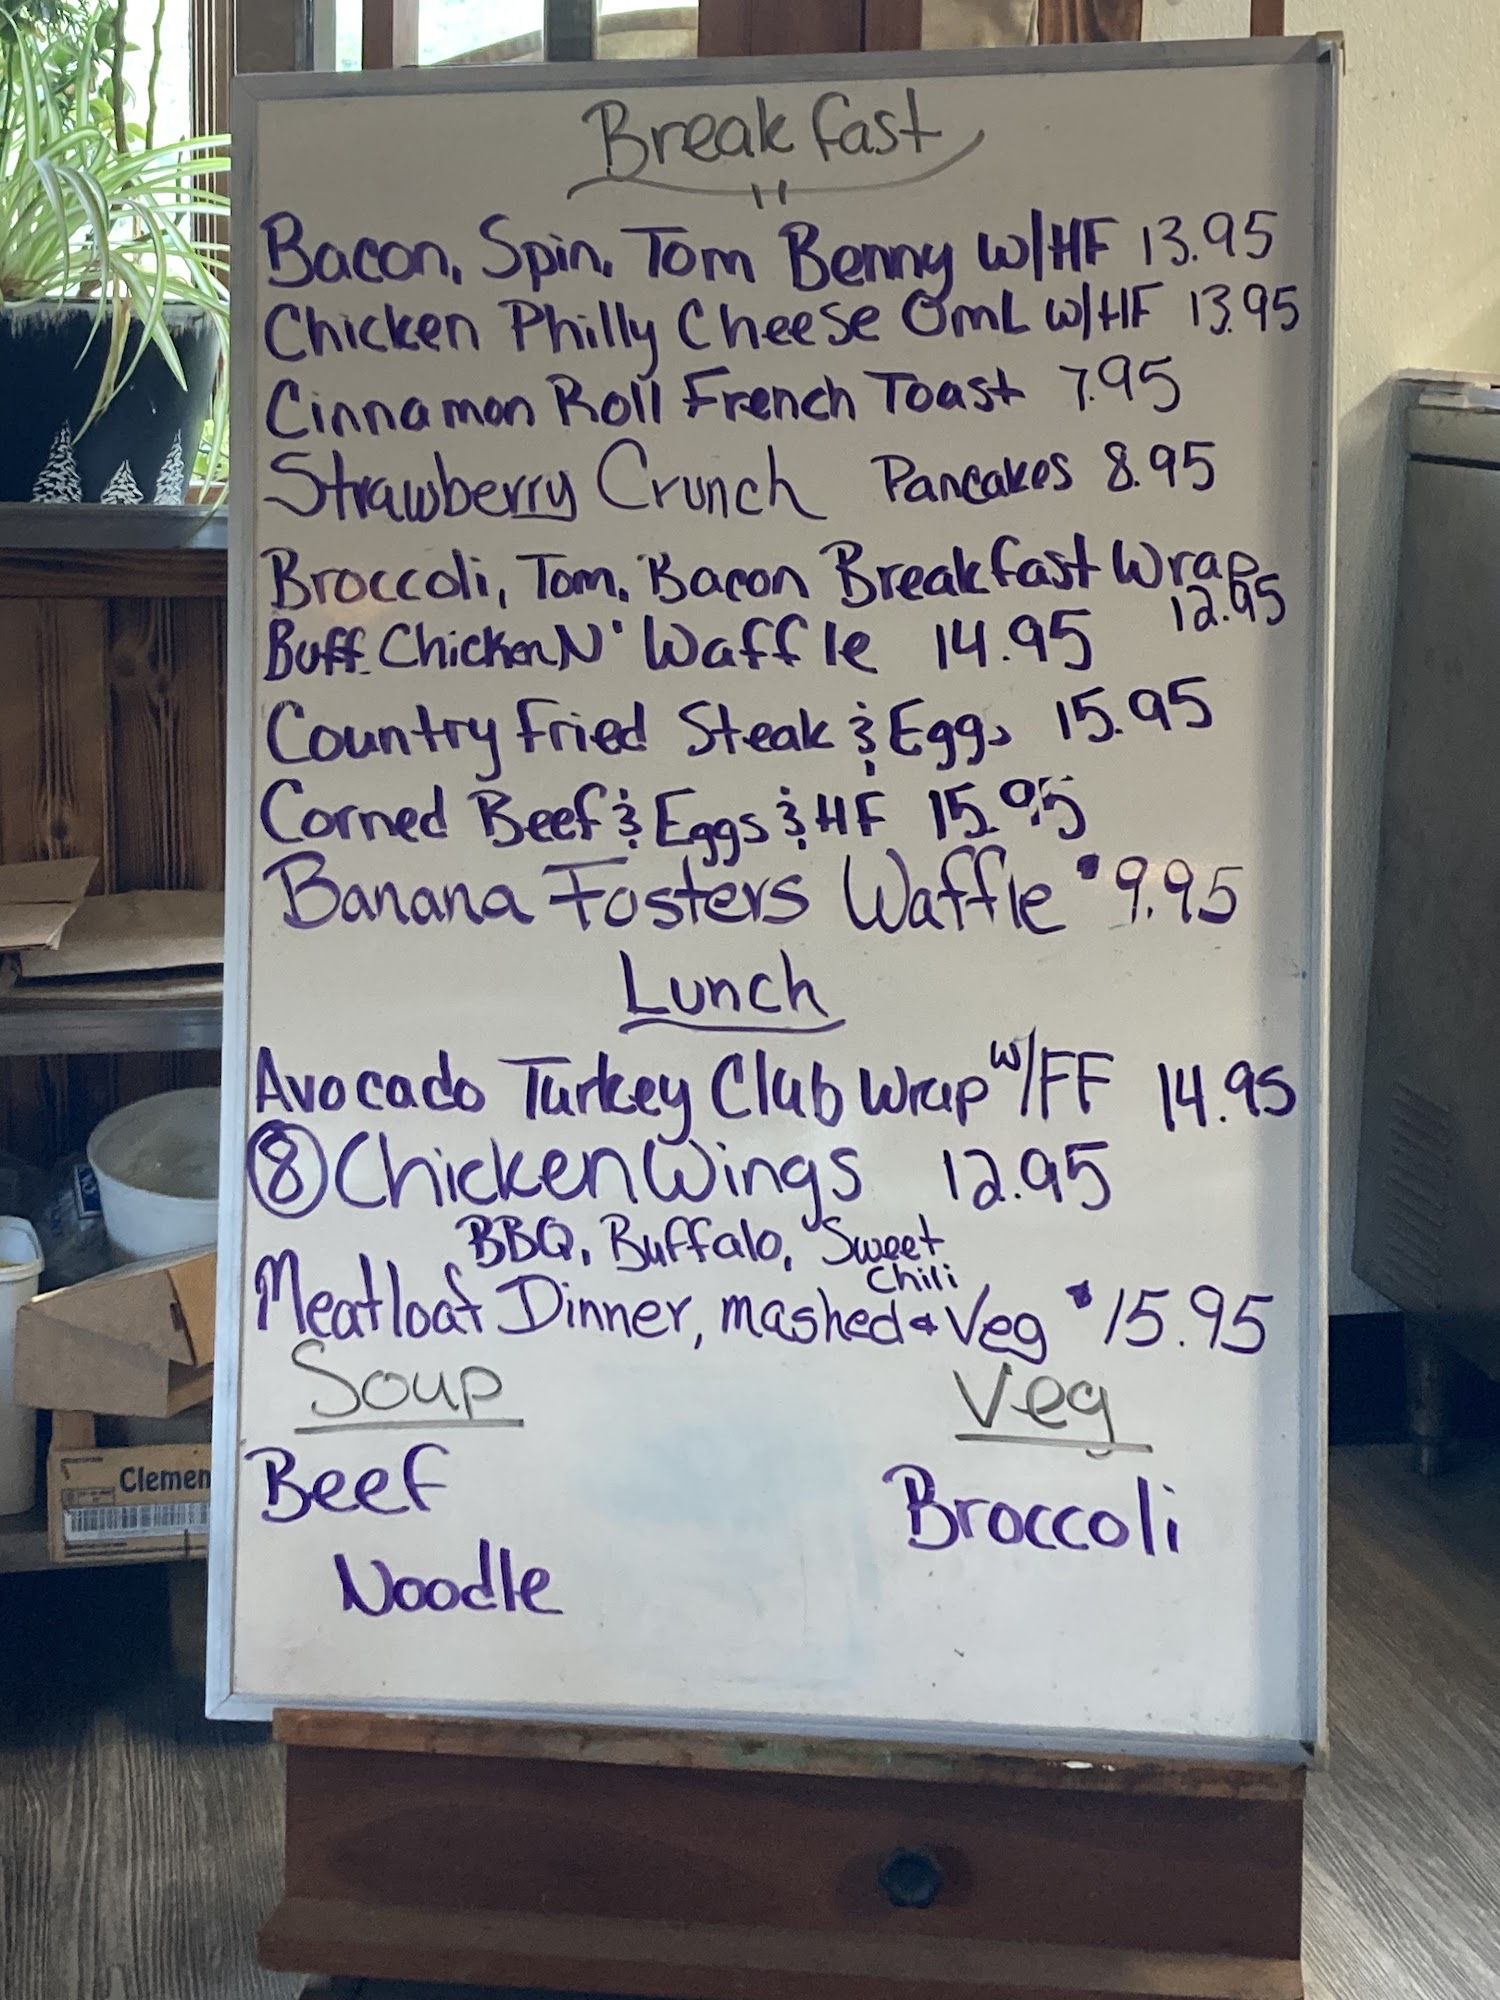 Breakfast
Bacon, Spin, Tom Benny w/HF 13.95
Chicken Philly Cheese OmL w/HF 13.95
Cinnamon Roll French Toast 7.95
Strawberry Crunch Pancakes 8.95
Broccoli, Tom, Bacon Breakfast Wrap
12.95
Buff Chicken N' Waffle 14.95
Country Fried Steak & Eggs 15.95
Corned Beef & Eggs & HF 15.95
Banana Fosters Waffle 9.95
Lunch
Avocado Turkey Club Wrap w/FF 14.95
8 Chicken Wings 12.95
BBQ, Buffalo, Sweet
Chili
Meatloaf Dinner, mashed & Veg 15.95
Soup
Veg
Beef
Noodle
Broccoli
Clemen